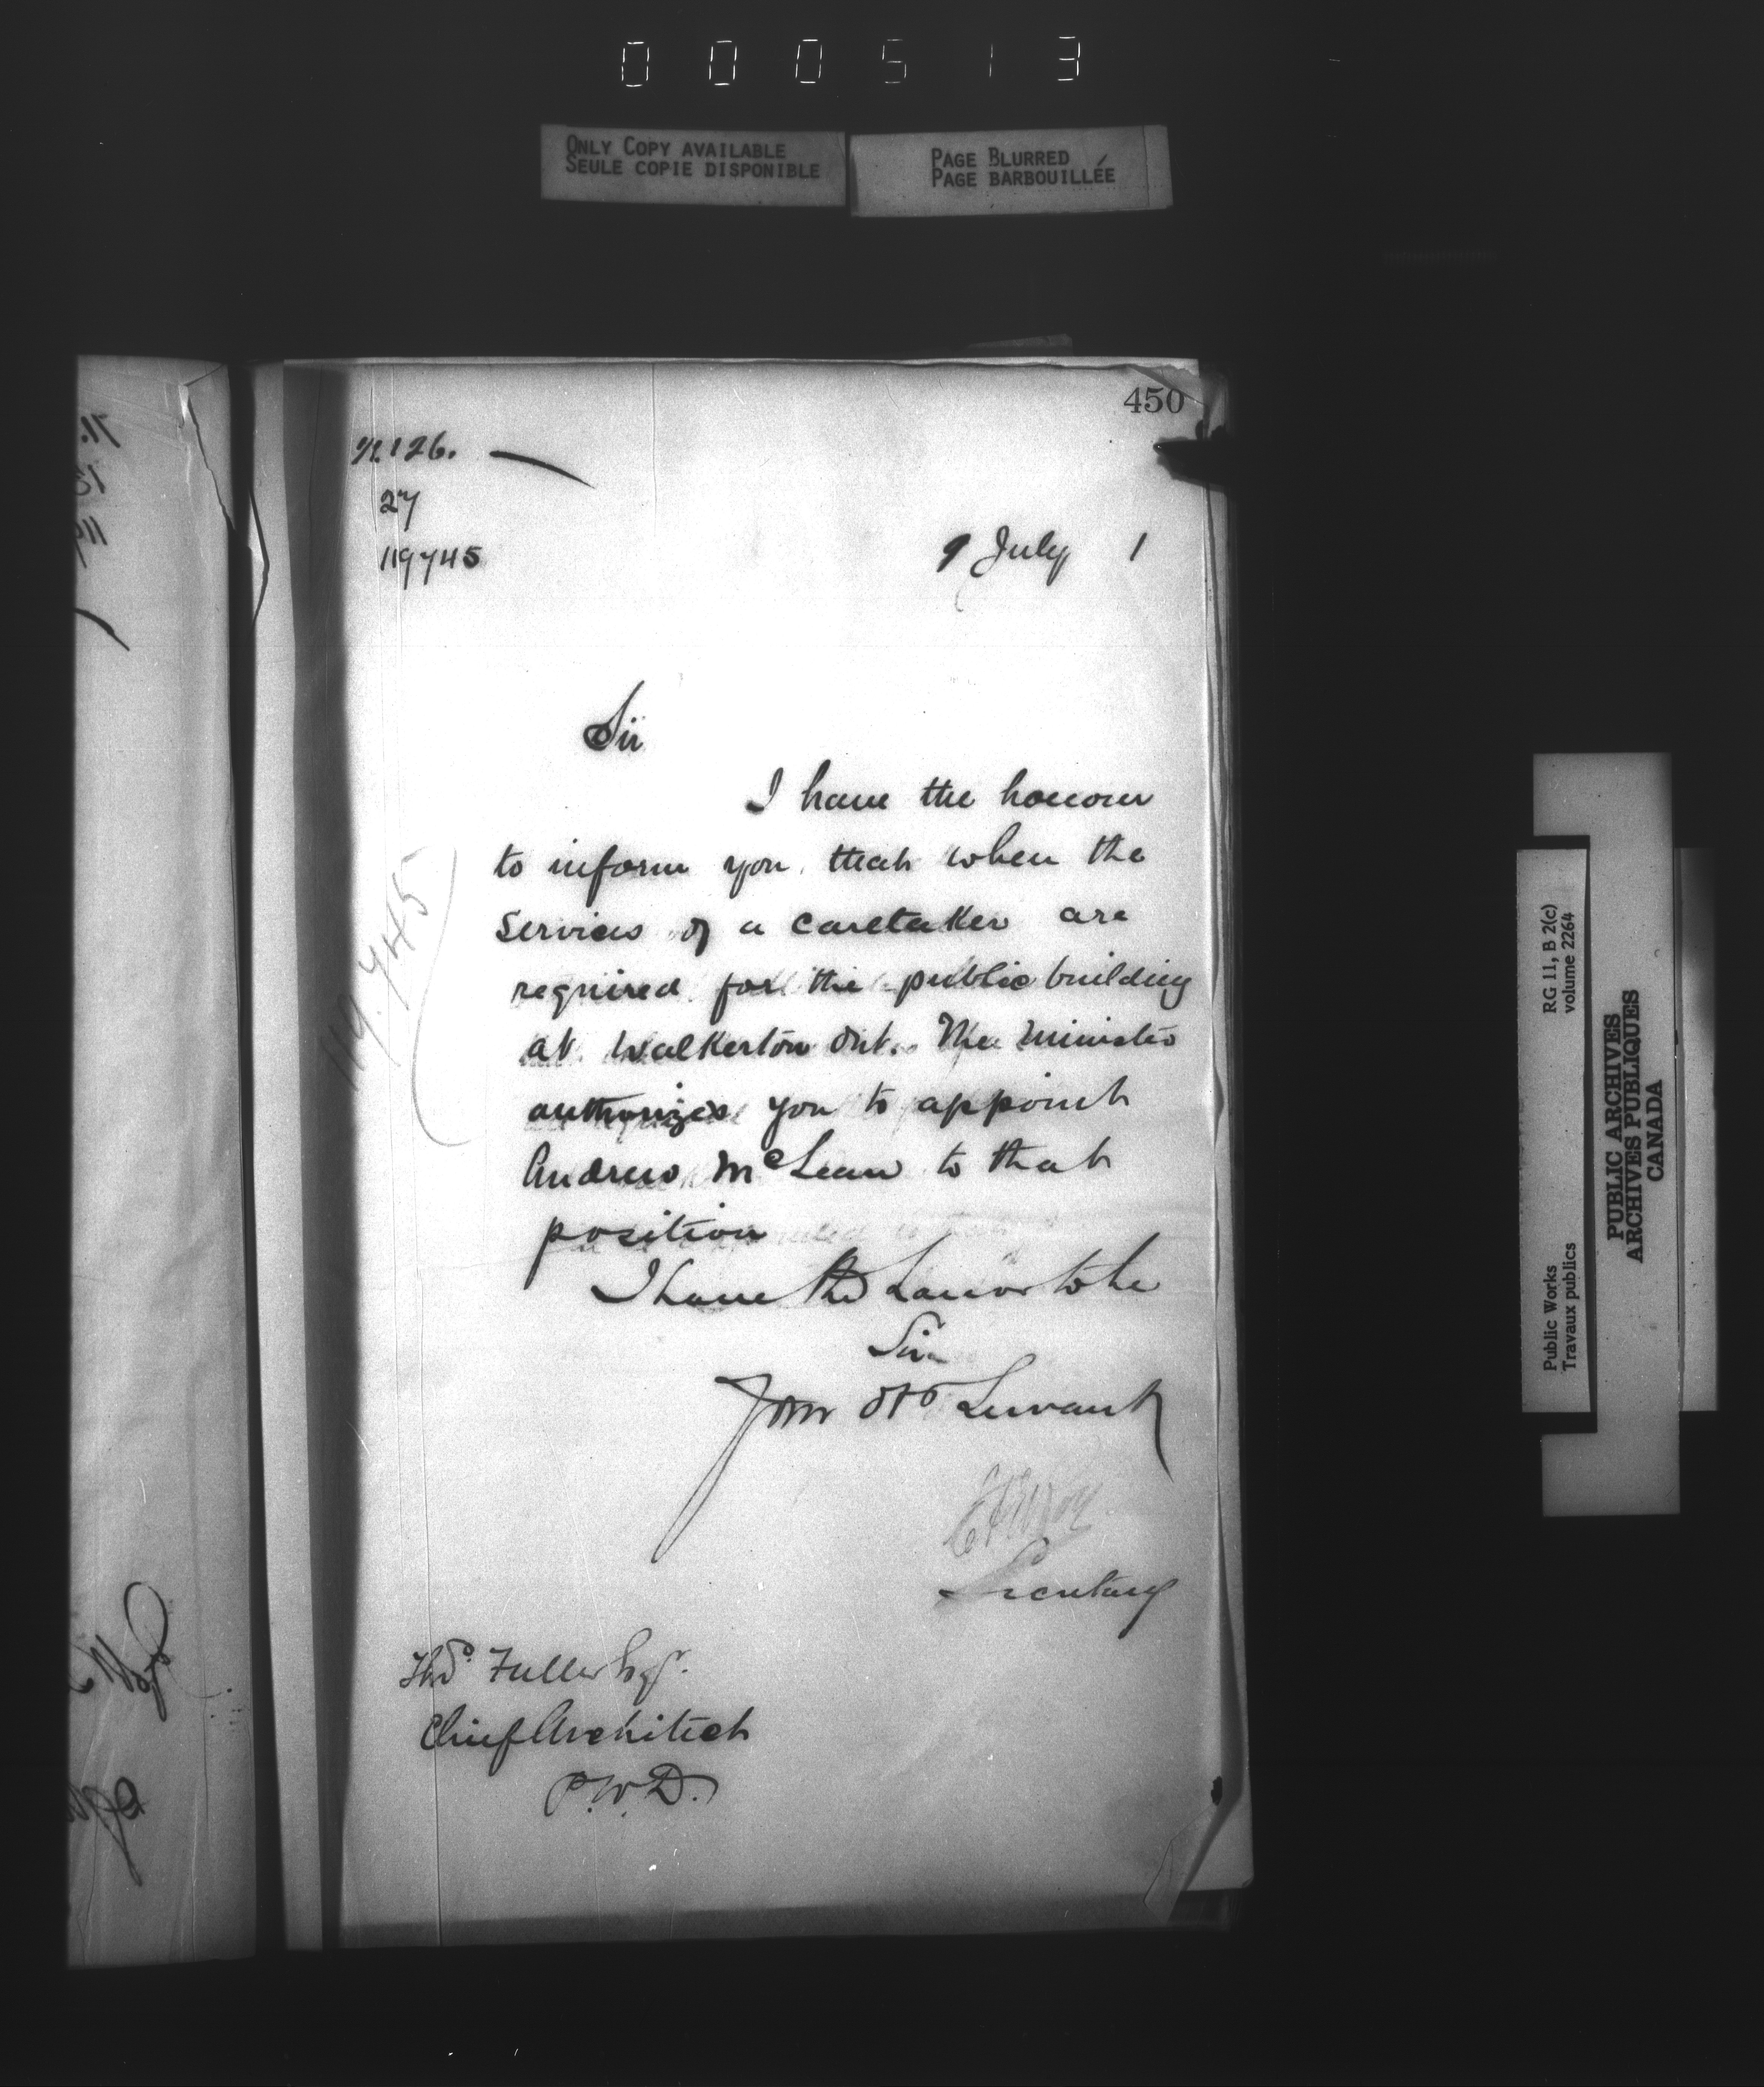 000513
ONLY COPY AVAILABLE
SEULE COPIE DISPONIBLE
PAGE BLURRED
PAGE BARBOUILLÉE
450
126.
27
119745
9 July 1
Sir
I have the honour
to inform you that when the
services of a caretaker are
required for the public building
at Walkerton Ont. The Minister
authorizes you to appoint
Andrew McLean to that
position
I have the honor to be
Sir
Your Obt Servant
Secretary
Thos. Fuller Esqr.
Chief Architect
P.W.D.
119745
RG 11, B 2(c)
volume 2264
Public Works
Travaux publics
PUBLIC ARCHIVES
ARCHIVES PUBLIQUES
CANADA